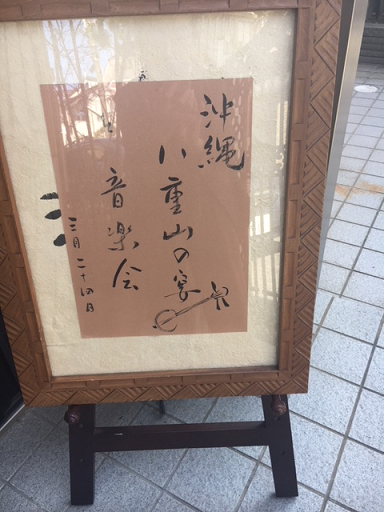 沖縄
八重山の宴
音楽会
三月二十四日